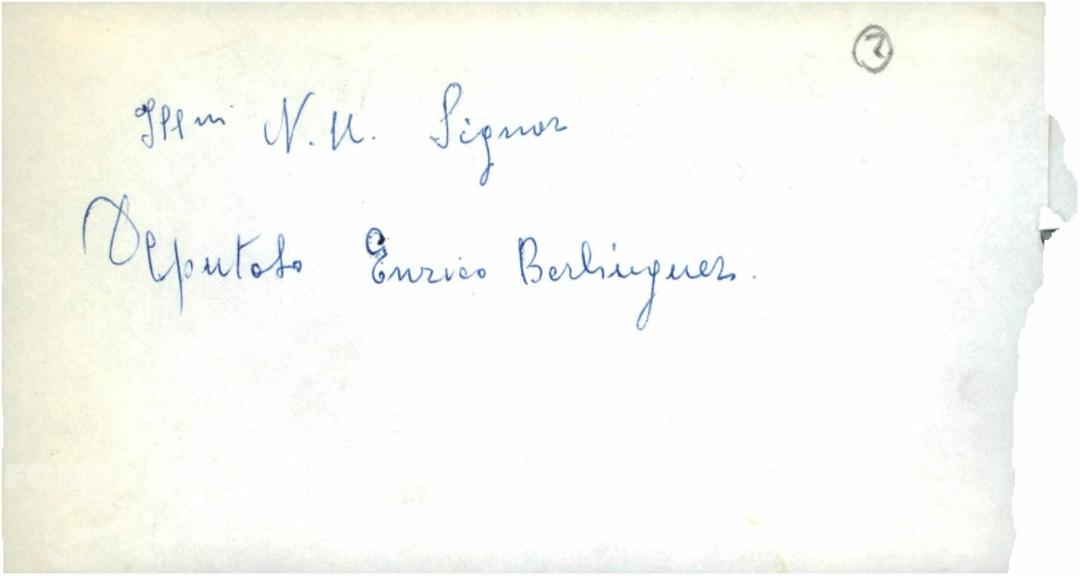 2
Illmi N. U. Signor
Deputato Enrico Berlinguer.